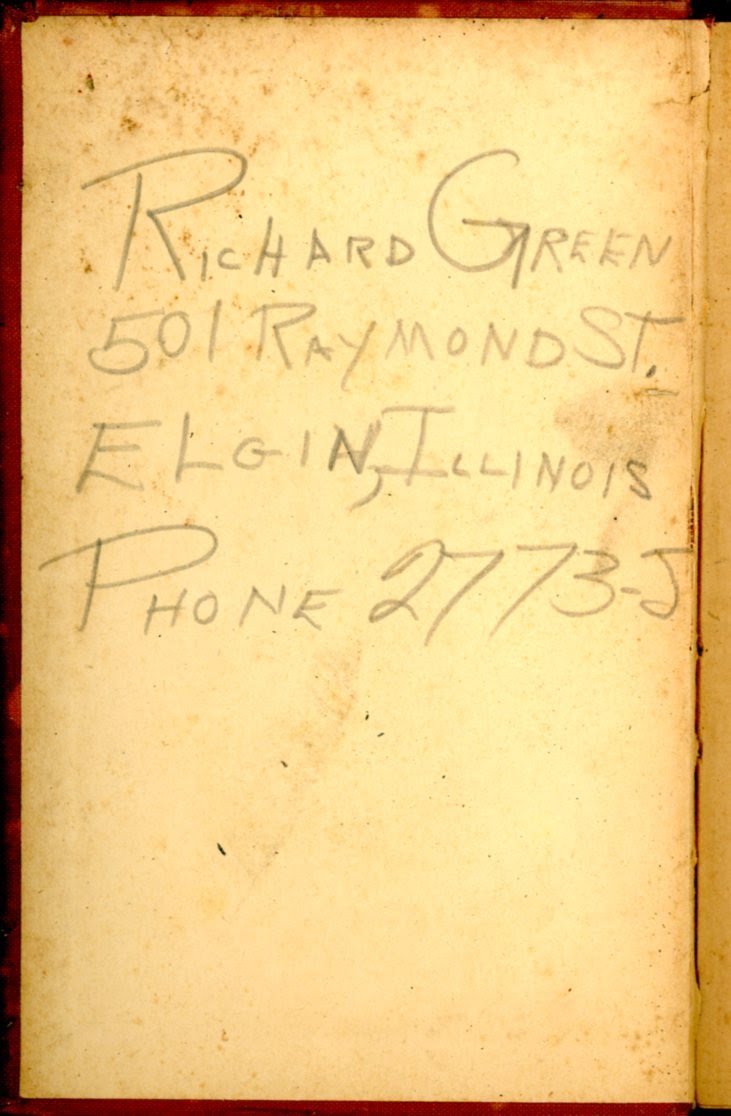 RICHARD GREEN
501 RAYMOND ST.
ELGIN, ILLINOIS
PHONE 2773-J